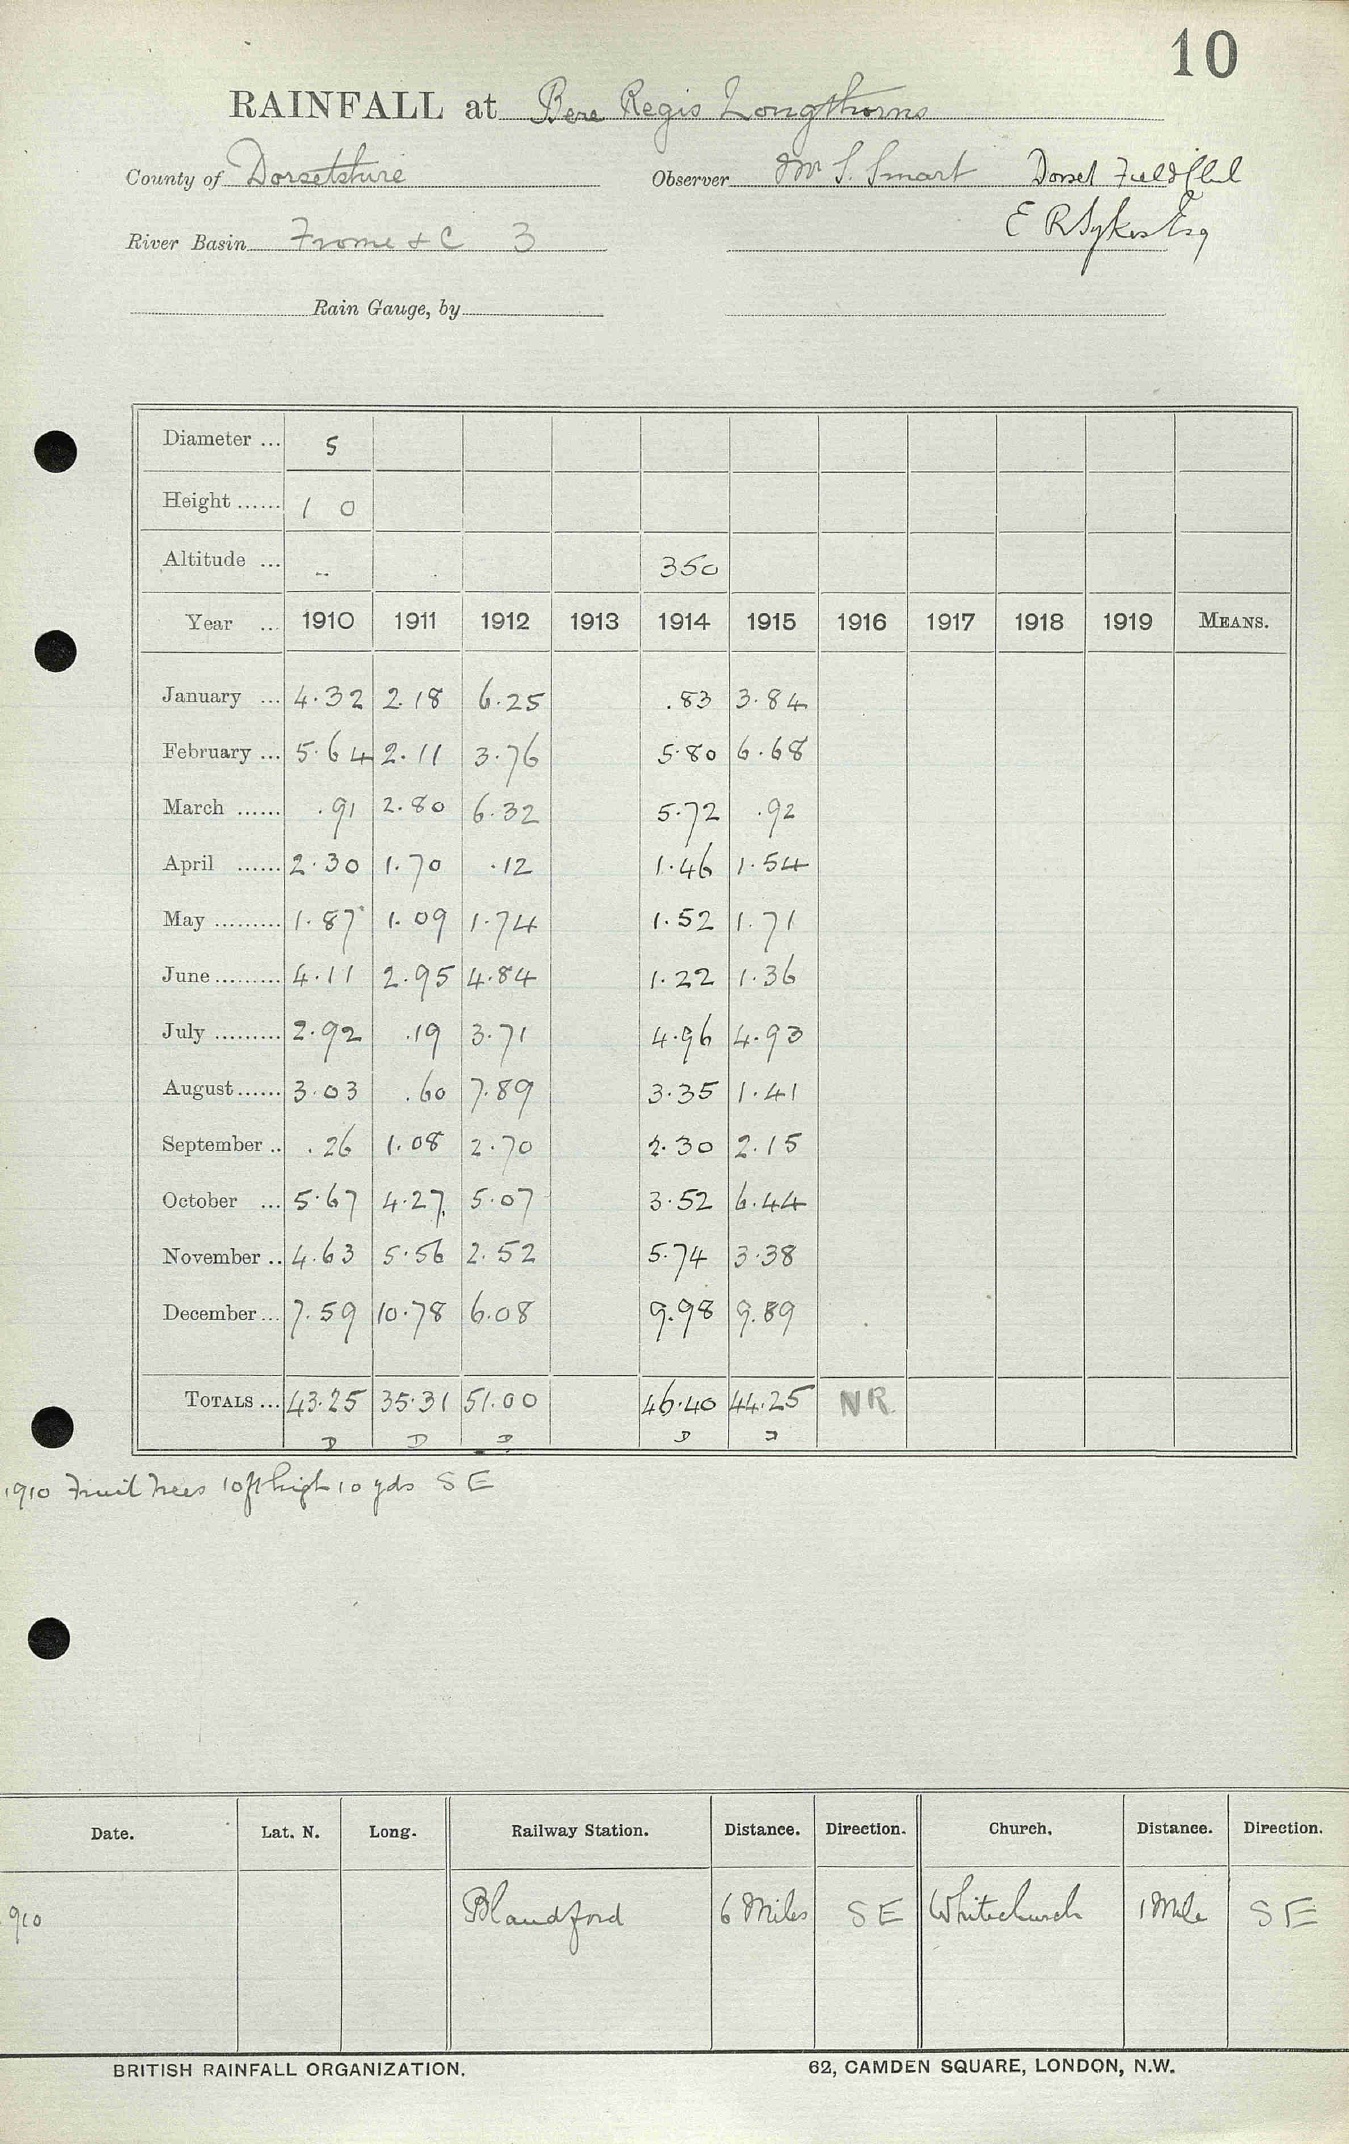 10
RAINFALL at Bere Regis Longthorns
County of Dorsetshire Observer Mr S. Smart Dorset Field Club
River Basin Frome & C 3 E R Sykes Esq
Rain Gauge, by
Diameter ... 5
Height ...... 1 0
Altitude ... .. 350
Year ... 1910 1911 1912 1913 1914 1915 1916 1917 1918 1919 MEANS.
January ... 4.32 2.18 6.25 .83 3.84
February ... 5.64 2.11 3.76 5.80 6.68
March ...... .91 2.80 6.32 5.72 .92
April ...... 2.30 1.70 .12 1.46 1.54
May ......... 1.87 1.09 1.74 1.52 1.71
June ......... 4.11 2.95 4.84 1.22 1.36
July ......... 2.92 .19 3.71 4.96 4.93
August ...... 3.03 .60 7.89 3.35 1.41
September .. .26 1.08 2.70 2.30 2.15
October ... 5.67 4.27 5.07 3.52 6.44
November .. 4.63 5.56 2.52 5.74 3.38
December ... 7.59 10.78 6.08 9.98 9.89
TOTALS ... 43.25 35.31 51.00 46.40 44.25 NR
D D D D
1910 Fruit Trees 10ft high 10 yds S E
Date. Lat. N. Long. Railway Station. Distance. Direction. Church. Distance. Direction.
910 Blandford 6 Miles S E Whitechurch 1 Mile S E
BRITISH RAINFALL ORGANIZATION. 62, CAMDEN SQUARE, LONDON, N.W.